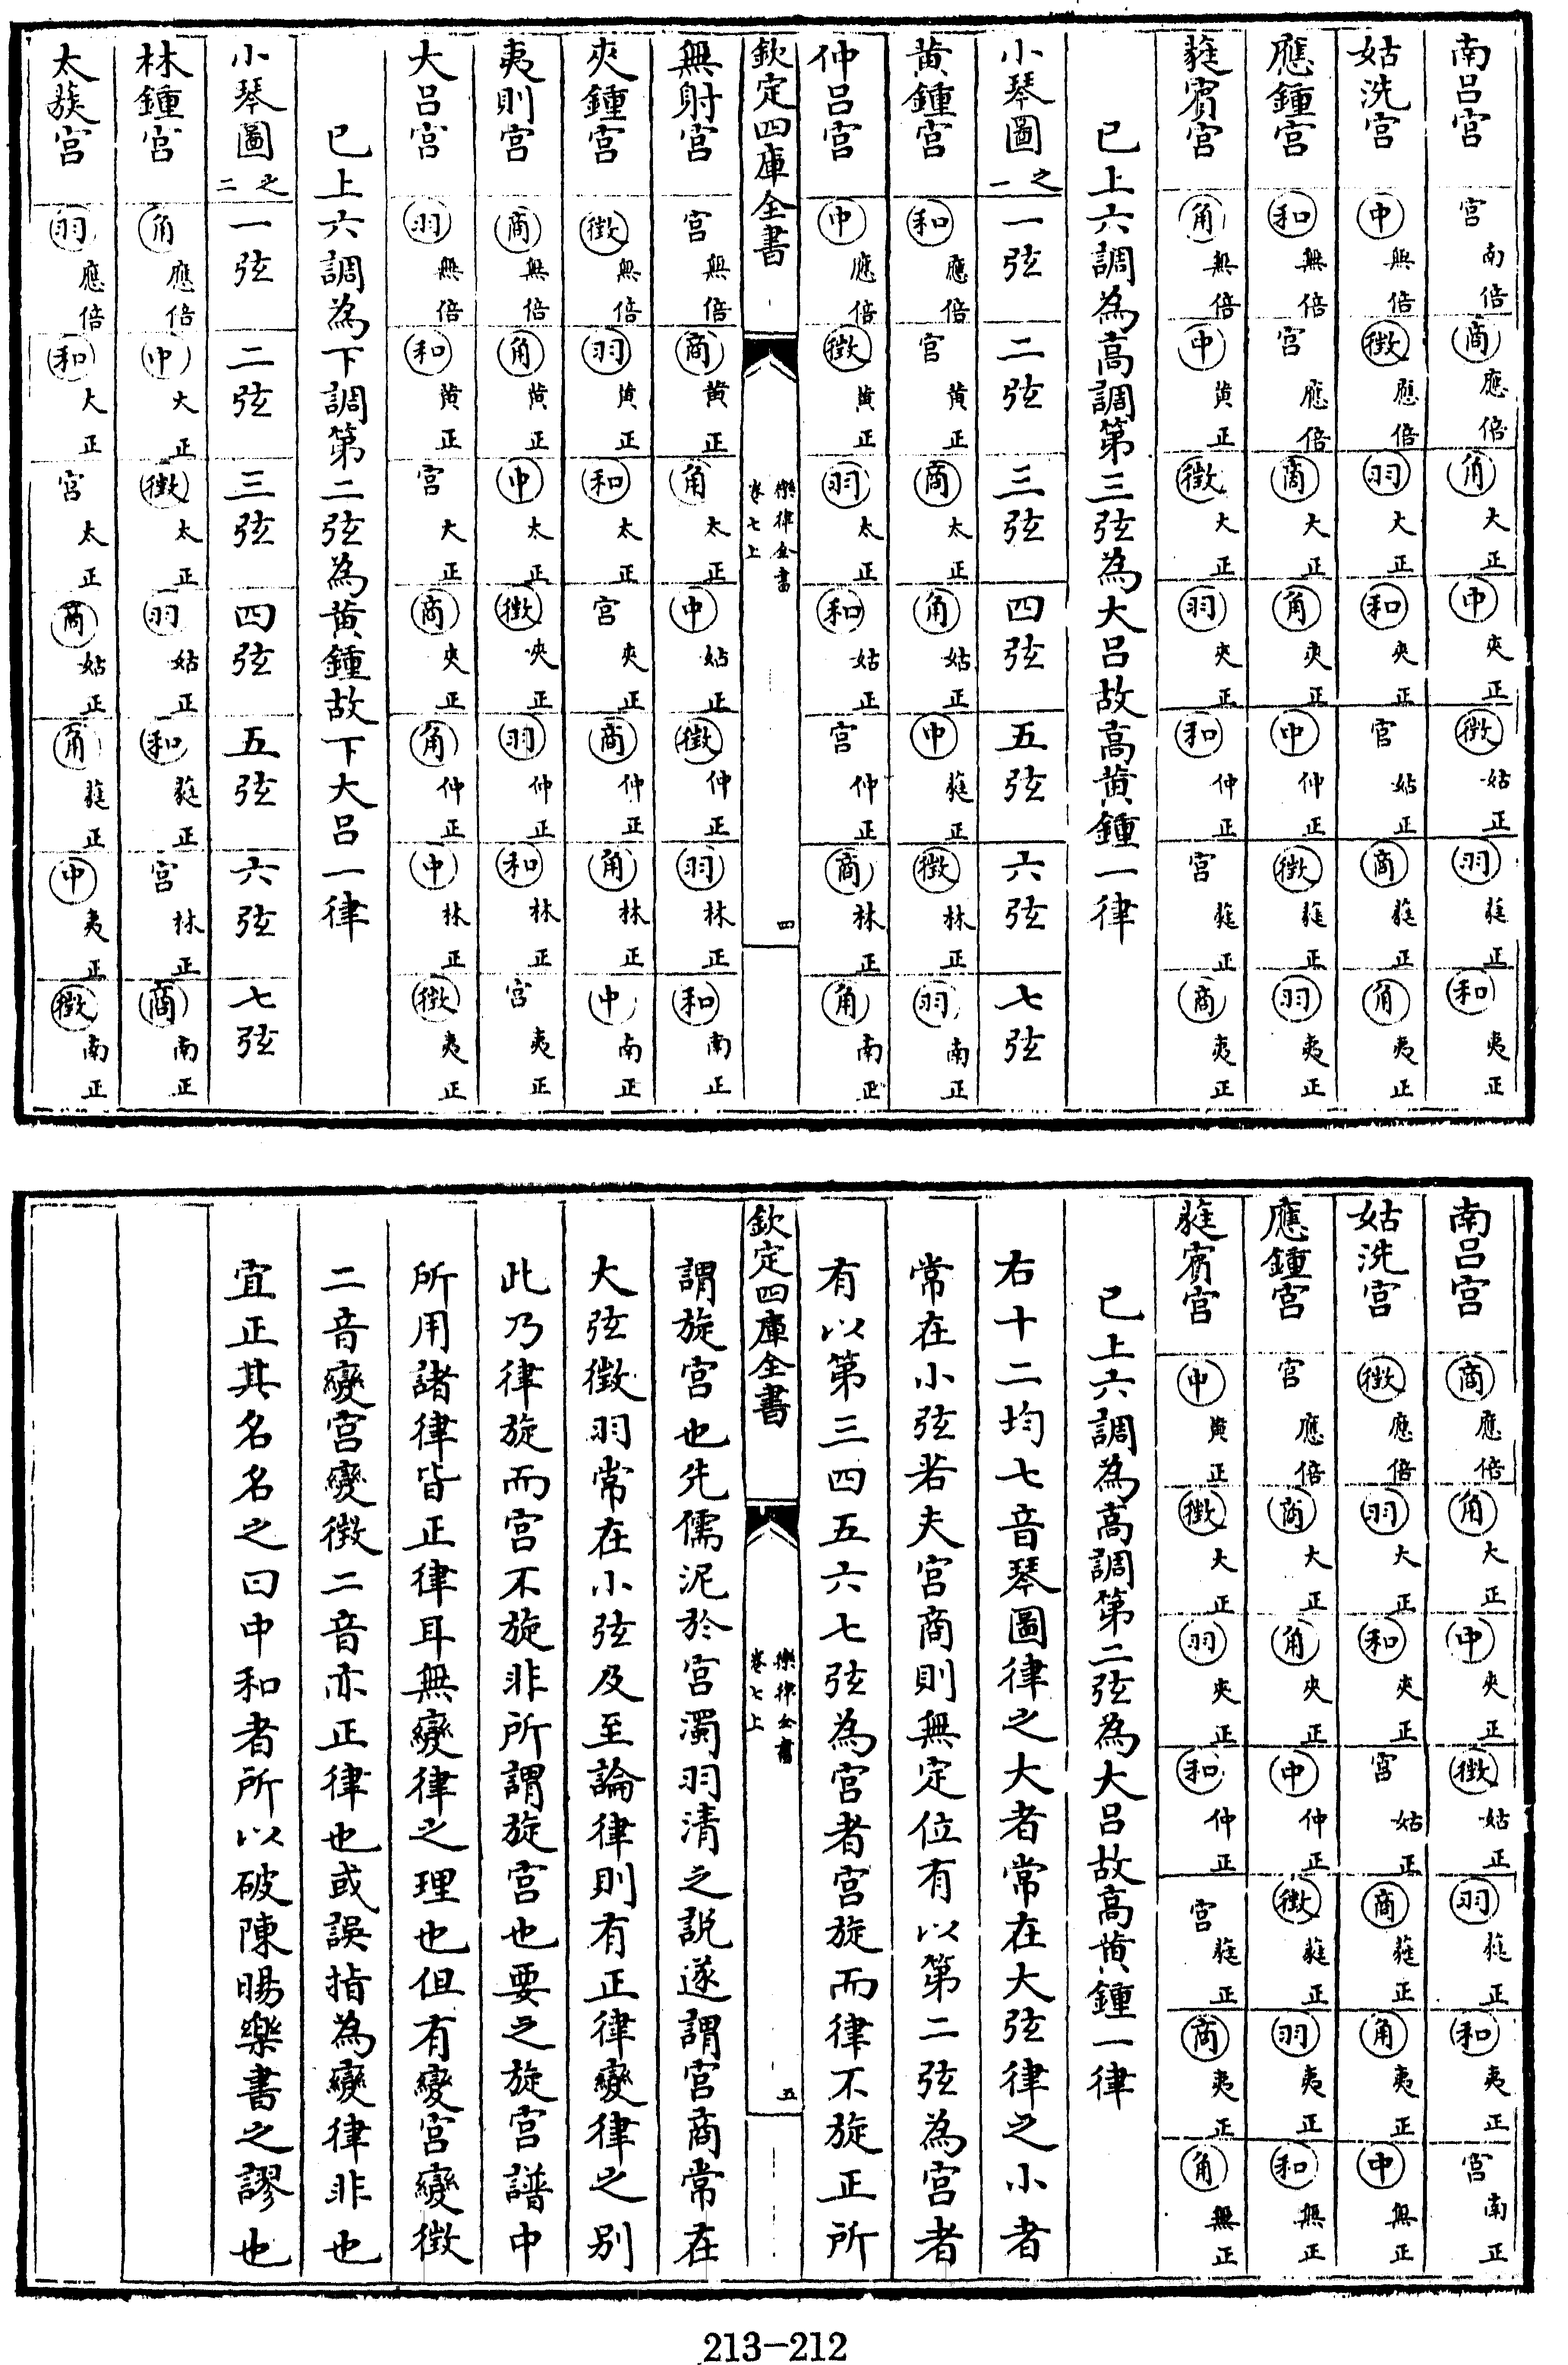 南呂宮 宮南倍 商應倍 角大正 中夾正 徵姑正 羽蕤正 和夷正
姑洗宮 中無倍 徵應倍 羽大正 和夾正 宮姑正 商蕤正 角夷正
應鍾宮 和無倍 宮應倍 商大正 角夾正 中仲正 徵蕤正 羽夷正
蕤賓宮 角無倍 中黃正 徵大正 羽夾正 和仲正 宮蕤正 商夷正
已上六調為高調第三弦為大呂故高黃鍾一律
小琴圖之一 一弦 二弦 三弦 四弦 五弦 六弦 七弦
黃鍾宮 和應倍 宮黃正 商太正 角姑正 中蕤正 徵林正 羽南正
仲呂宮 中應倍 徵黃正 羽太正 和姑正 宮仲正 商林正 角南正
欽定四庫全書 樂律全書 卷七上 四
無射宮 宮無倍 商黃正 角太正 中姑正 徵仲正 羽林正 和南正
夾鍾宮 徵無倍 羽黃正 和太正 宮夾正 商仲正 角林正 中南正
夷則宮 商無倍 角黃正 中太正 徵夾正 羽仲正 和林正 宮夷正
大呂宮 羽無倍 和黃正 宮大正 商夾正 角仲正 中林正 徵夷正
已上六調為下調第二弦為黃鍾故下大呂一律
小琴圖之二 一弦 二弦 三弦 四弦 五弦 六弦 七弦
林鍾宮 角應倍 中大正 徵太正 羽姑正 和蕤正 宮林正 商南正
太蔟宮 羽應倍 和大正 宮太正 商姑正 角蕤正 中夷正 徵南正
南呂宮 商應倍 角大正 中夾正 徵姑正 羽蕤正 和夷正 宮南正
姑洗宮 徵應倍 羽大正 和夾正 宮姑正 商蕤正 角夷正 中無正
應鍾宮 宮應倍 商大正 角夾正 中仲正 徵蕤正 羽夷正 和無正
蕤賓宮 中黃正 徵大正 羽夾正 和仲正 宮蕤正 商夷正 角無正
已上六調為高調第二弦為大呂故高黃鍾一律
右十二均七音琴圖律之大者常在大弦律之小者
常在小弦若夫宮商則無定位有以第二弦為宮者
有以第三四五六七弦為宮者宮旋而律不旋正所
欽定四庫全書 樂律全書 卷七上 五
謂旋宮也先儒泥於宮濁羽清之說遂謂宮商常在
大弦徵羽常在小弦及至論律則有正律變律之別
此乃律旋而宮不旋非所謂旋宮也要之旋宮譜中
所用諸律皆正律耳無變律之理也但有變宮變徵
二音變宮變徵二音亦正律也或誤指為變律非也
宜正其名名之曰中和者所以破陳暘樂書之謬也
213-212